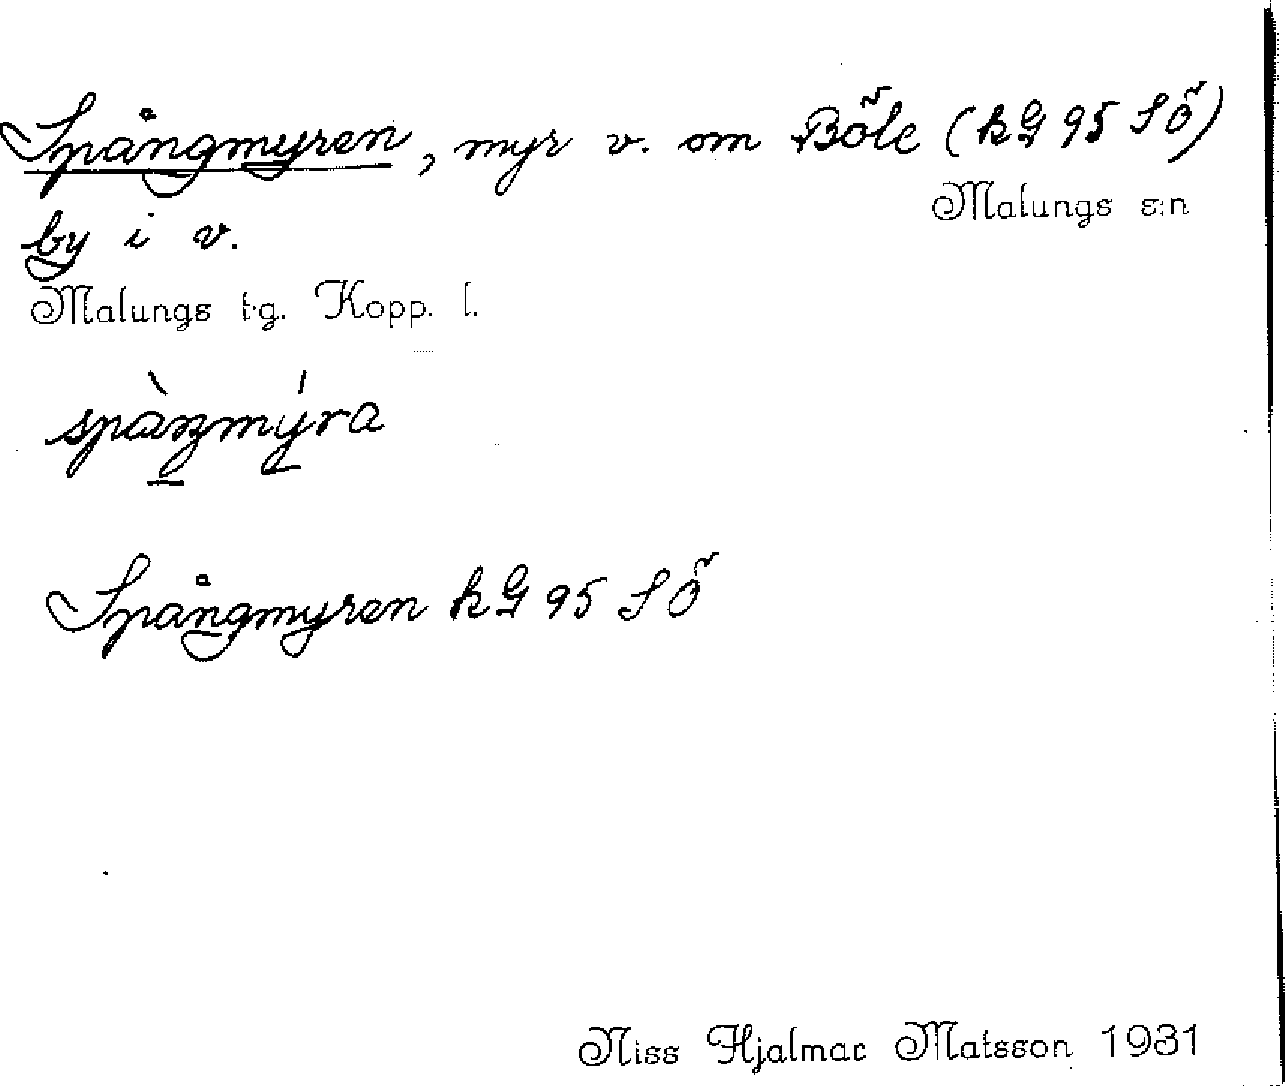 Spångmyren, myr v. om Böle (kG 95 SÖ)
Malungs s:n
by i v.
Malungs t.g. Kopp. l.
Spångmyren kG 95 SÖ
Niss Hjalmar Matsson 1931